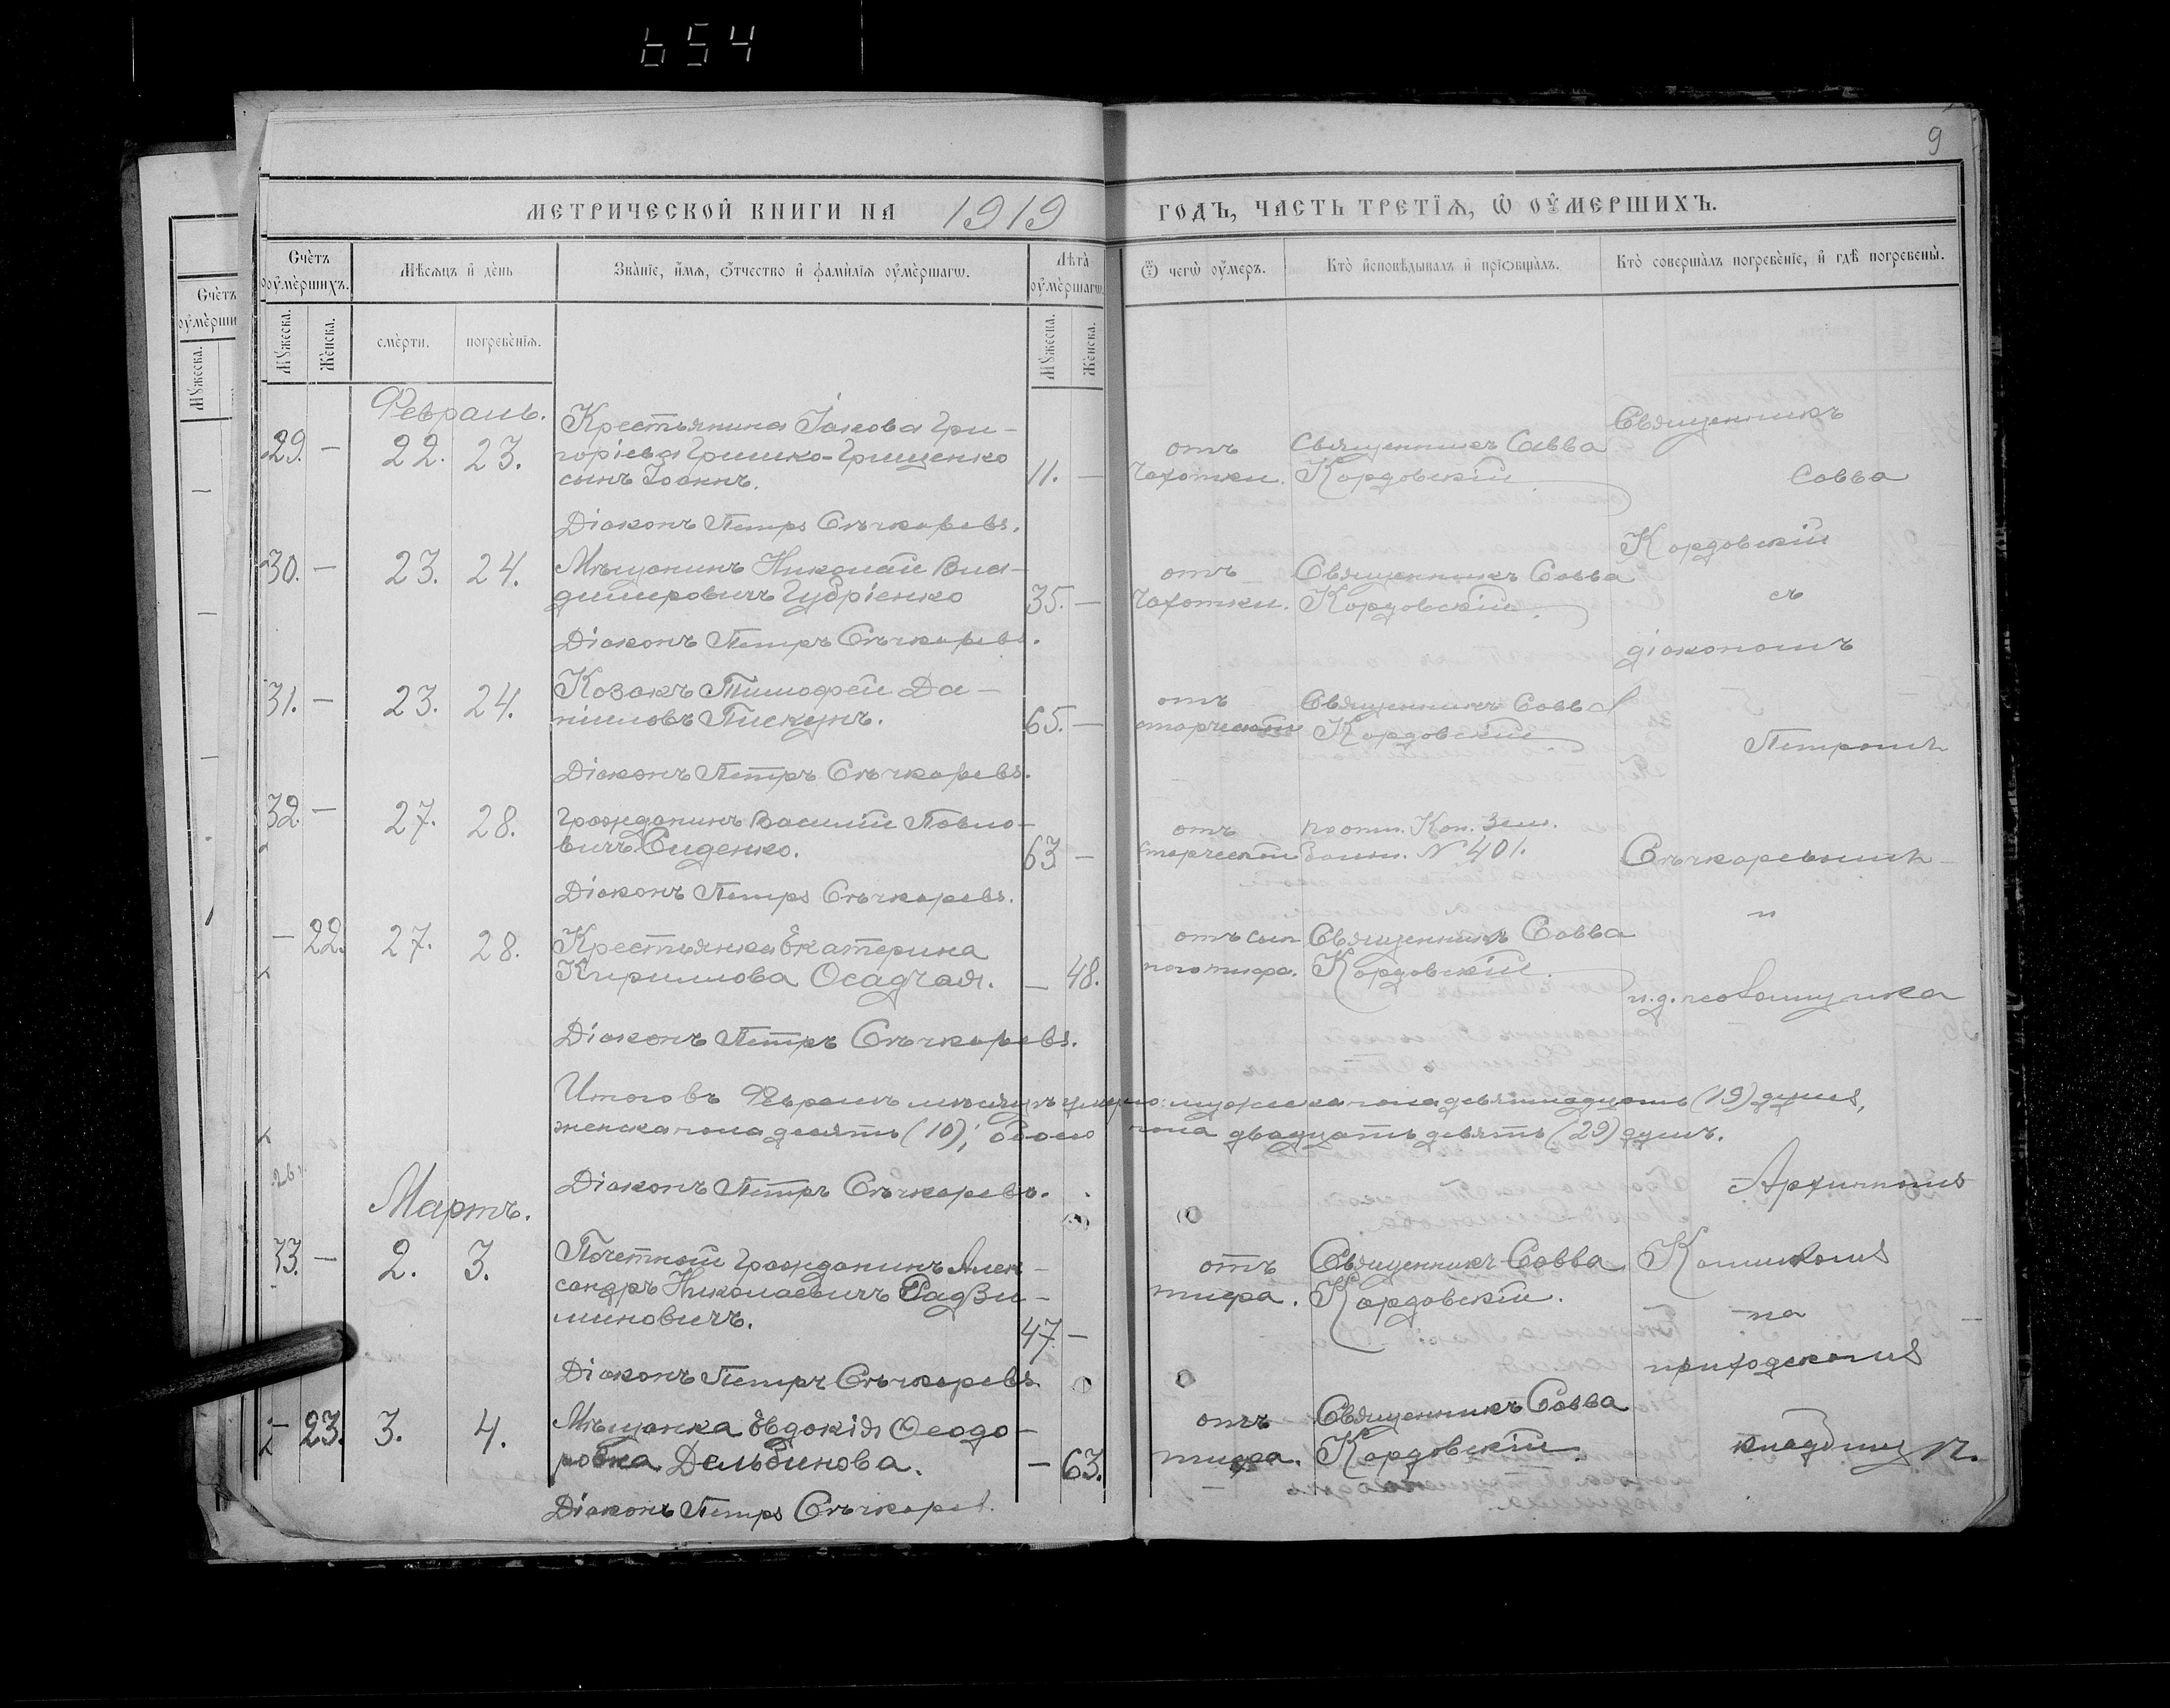 654
9
МЕТРИЧЕСКОЙ КНИГИ НА 1919 ГОДЪ, ЧАСТЬ ТРЕТІѦ, Ѡ ОУМЕРШИХЪ.
Счетъ оумершихъ.
Мѣсѧцъ и день
Званіе, имѧ, отчество и фамиліѧ оумершагѡ.
Лѣта оумершагѡ.
Ѿ чегѡ оумеръ.
Кто исповѣдывалъ и пріѡбщалъ.
Кто совершалъ погребеніе, и гдѣ погребены.
Мужеска.
Женска.
смерти.
погребеніѧ.
Мужеска.
Женска.
Счетъ
оумерши
Мужеска.
Февраль.
29. — 22. 23.
Крестьянина Іакова Гри-
горіева Гришко-Грищенко
сынъ Іоаннъ.
11. —
отъ
чахотки.
Священникъ Савва
Кордовскій
Діаконъ Петръ Сѣчкаревъ.
30. — 23. 24.
Мѣщанинъ Николай Вла-
димировичъ Губріенко
35. —
отъ
чахотки.
Священникъ Савва
Кордовскій
Діаконъ Петръ Сѣчкаревъ.
31. — 23. 24.
Козакъ Тимофей Да-
ніиловъ Пискунъ.
65. —
отъ
старческой
Священникъ Савва
Кордовскій
Діаконъ Петръ Сѣчкаревъ.
32. — 27. 28.
Гражданинъ Василій Павло-
вичъ Сиденко.
63 —
отъ
старческой
№ 401.
Діаконъ Петръ Сѣчкаревъ.
— 22. 27. 28.
Крестьянка Екатерина
Кириллова Осадчая.
— 48.
отъ сып
ного тифа.
Священникъ Савва
Кордовскій.
Діаконъ Петръ Сѣчкаревъ.
Священникъ
Савва
Кордовскій
съ
діакономъ
Петромъ
Сѣчкаревымъ
и
и.д. псаломщика
Архипомъ
на
приходскомъ
кладбищѣ.
Итого въ Февралѣ мѣсяцѣ умерло: мужеска пола девятнадцать (19) душъ,
женска пола десять (10); обоего пола двадцать девять (29) душъ.
Діаконъ Петръ Сѣчкаревъ.
Мартъ.
33. — 2. 3.
Почетный Гражданинъ Алек-
сандръ Николаевичъ Радзи-
миновичъ.
47 —
отъ
тифа.
Священникъ Савва
Кордовскій.
Діаконъ Петръ Сѣчкаревъ
— 23. 3. 4.
Мѣщанка Евдокія Ѳеодо-
ровна Дельбинова.
— 63.
отъ
тифа.
Священникъ Савва
Кордовскій.
Діаконъ Петръ Сѣчкаревъ.